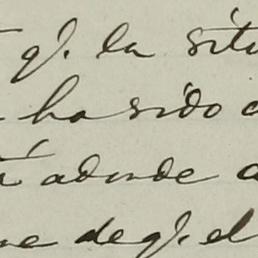 qᵉ. la situ
ha sido
adonde
de qᵉ. el